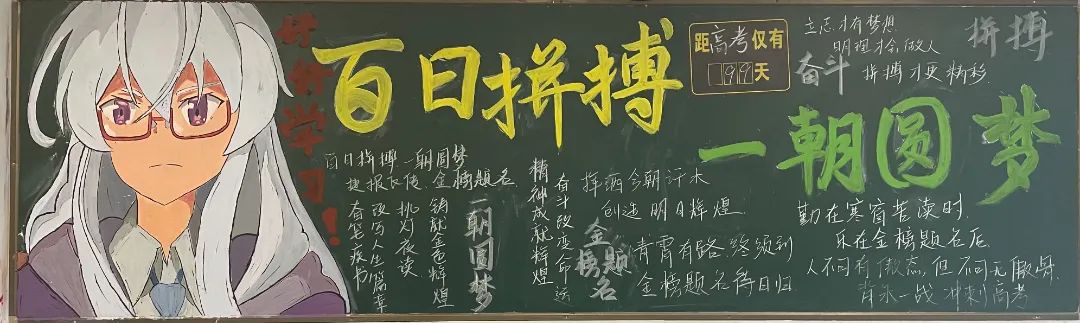 好好学习!
百日拼搏
距高考仅有
99天
立志才有梦想
明理才会做人
奋斗 拼搏才更精彩
拼搏
一朝圆梦
百日拼搏 一朝圆梦
捷报飞传 金榜题名
奋笔疾书
改写人生篇章
挑灯夜读
铸就金色辉煌
一朝圆梦
精神成就辉煌
奋斗改变命运
挥洒今朝汗水
创造明日辉煌
金榜题名
青霄有路终须到
金榜题名待日归
勤在寒窗苦读时
乐在金榜题名后
人不可有傲态,但不可无傲骨
背水一战 冲刺高考